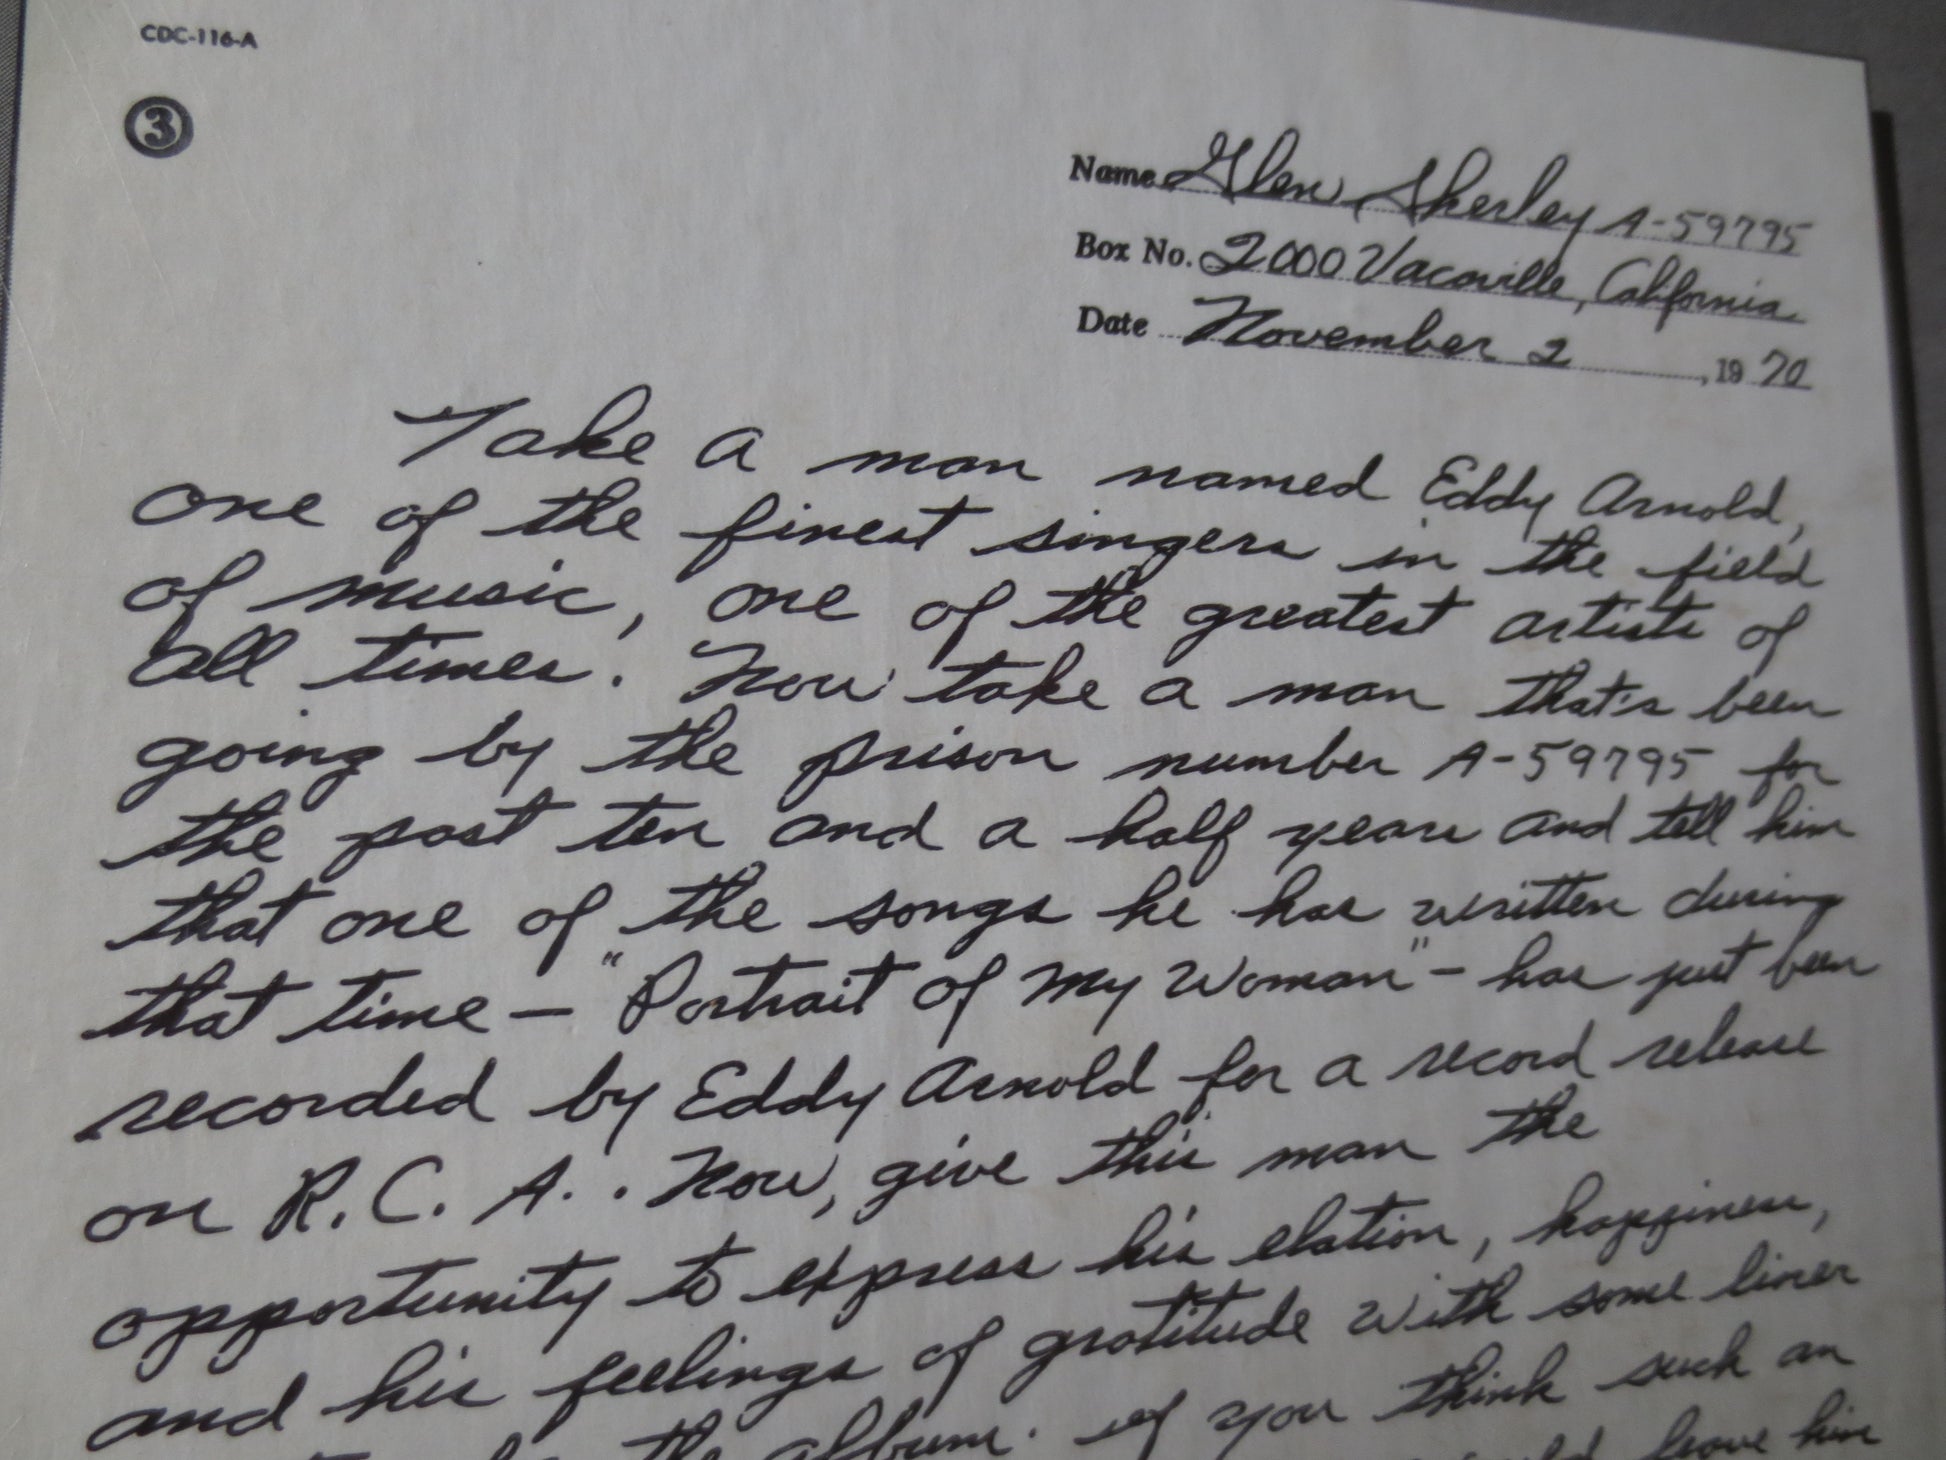 CDC-116-A
3
Name Glen Sherley A-59795
Box No. 2000 Vacaville, California
Date November 2, 1970
Take a man named Eddy Arnold,
one of the finest singers in the field
of music, one of the greatest artists of
all times. Now take a man that's been
going by the prison number A-59795 for
the past ten and a half years and tell him
that one of the songs he has written during
that time - "Portrait of My Woman" - has just been
recorded by Eddy Arnold for a record release
on R.C.A.. Now, give this man the
opportunity to express his elation, happiness,
and his feelings of gratitude with some liner
the album. If you think such an
leave him